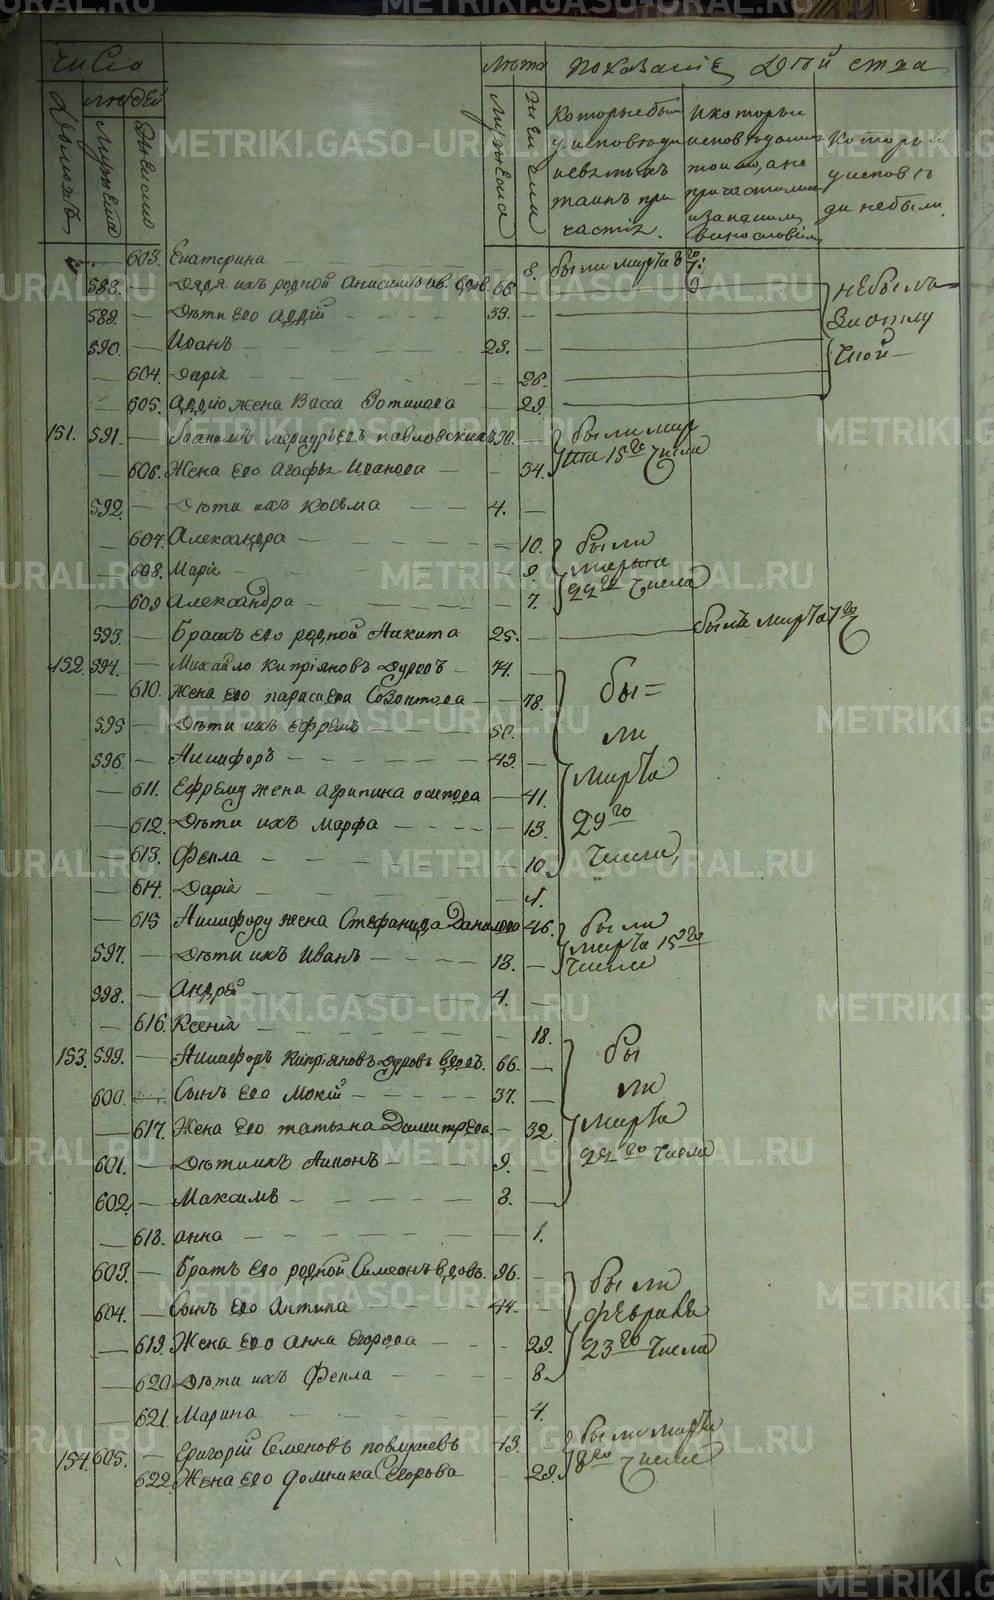 METRIKI.GASO-URAL.RU
Число
Лѣта
показание Дѣйства
людей
мужеска
женска
Которые были
у исповѣди
и святыхъ
таинъ при
частія.
И которые
исповѣдались
токмо, а не
причастились
и за какимъ
винословіемъ
Которые
у исповѣ
ди небыли
603. Екатерина 8. были марта 8го
588. Дядя ихъ родной Анисимъ 66
589. Дѣти его Авдій 33.
590. Иванъ 23.
604. Дарія 26.
605. Авдію жена Васса Фотиева 29.
небыли
За отлу
чкой
151. 591. павловскихъ 30.
606. Жена его Агафья Иванова 34.
были мар
та 15го числа
592. Дѣти ихъ Косьма 4.
607. Александра 10.
608. Марія 9.
609 Александра 7.
были
марта
22го числа
593. Братъ его родной Никита 25. былъ марта 1го
152. 594. Михайло Кипріяновъ Дуровъ 74.
610. Жена его параскева Созонтова 78.
595 Дѣти ихъ ефремъ 50.
596. Никифоръ 43.
611. Ефрему жена агрипина осипова 41.
612. Дѣти ихъ марфа 13.
613. Фекла 10
614. Дарія 1.
бы=
ли
Марта
29го
Числа,
615 Никифору жена Стефанида Данилова 46.
597. Дѣти ихъ Иванъ 13.
были
Марта 15го
числа
598. Андрей 4.
616. Ксенія 18.
153. 599. Никифоръ Кипріяновъ Дуровъ вдовъ. 66.
600. Сынъ его Мокій 37.
617. Жена его татьяна Димитрева 32.
601. Дѣти ихъ Никонъ 9.
602 Максимъ 3.
бы
ли
Марта
22го числа
618. анна 1.
603. Братъ его родной Симеонъ вдовъ. 96.
604. Сынъ его Антипа 44.
619. Жена его анна Егорова 29.
620 Дѣти ихъ Фекла 8
были
февраля
23го числа
621. Марина 4.
154. 605. Григорій Семеновъ 43.
622. Жена его домника Егорова 29.
были марта
18го числа